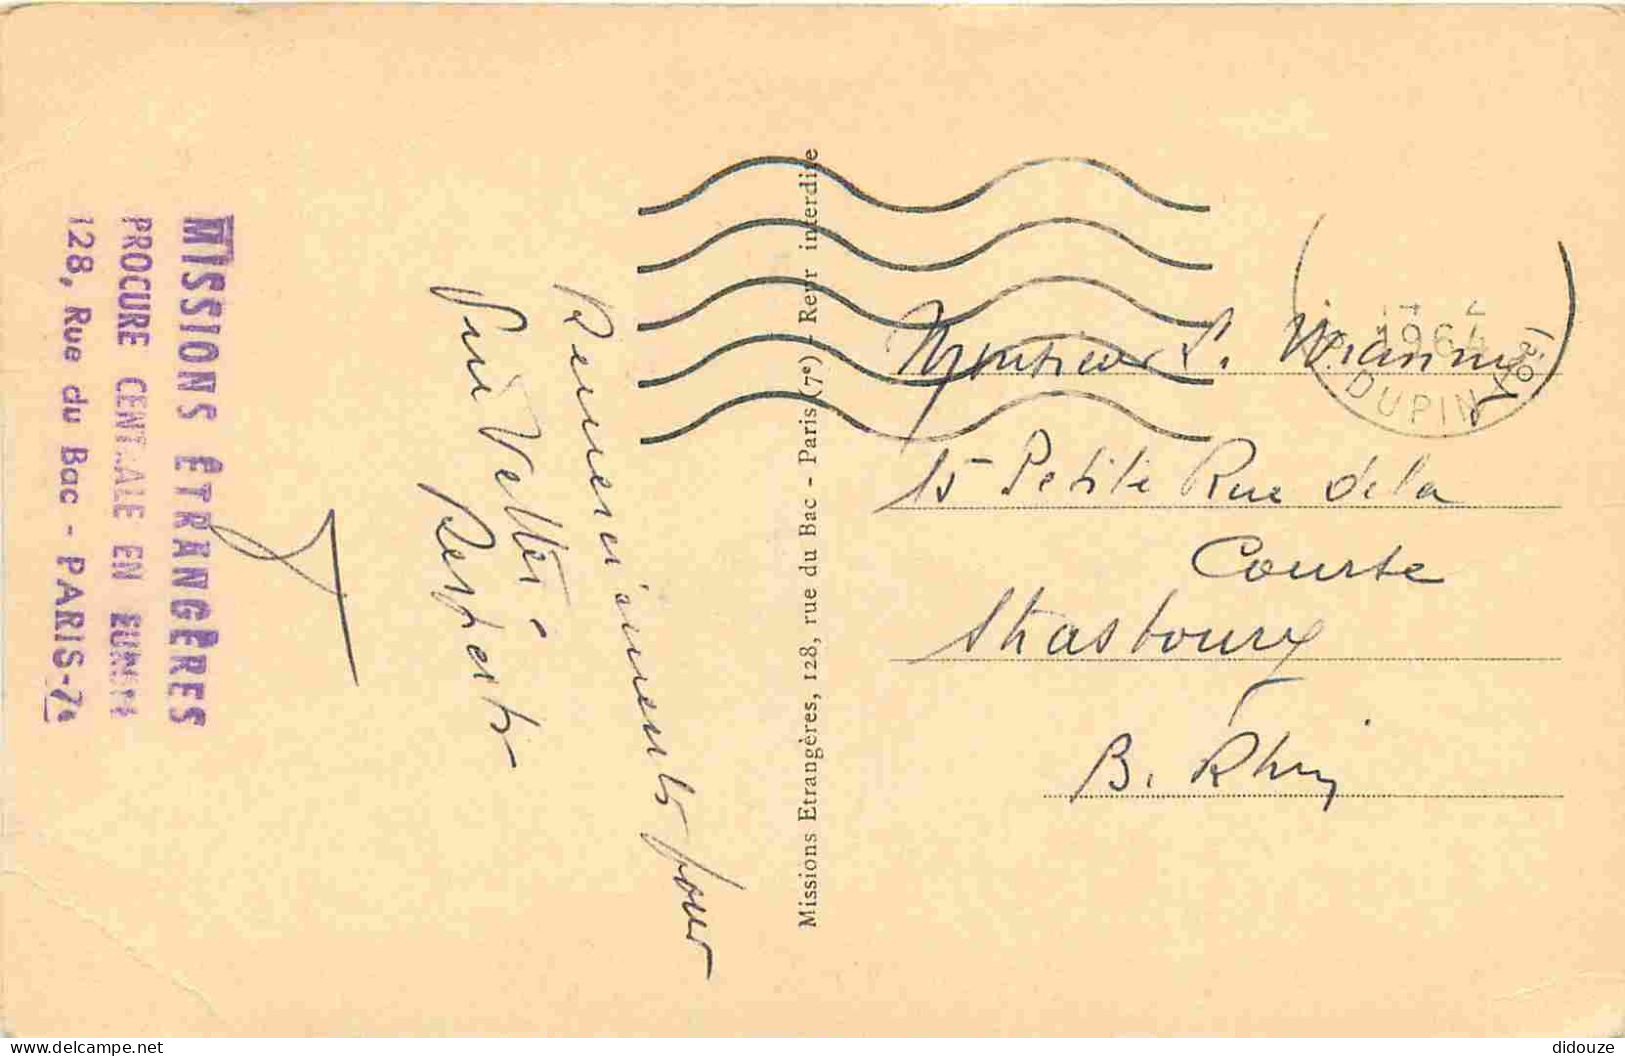 MISSIONS ÉTRANGÈRES
PROCURE CENTRALE EN
128, Rue du Bac - PARIS-7e
Remerciements pour
Respects
Missions Etrangères, 128, rue du Bac - Paris (7e) - Repr interdite
14 2
1964
R. DUPIN (6e)
Monsieur
15 Petite Rue de la
Course
Strasbourg
B. Rhin
didouze